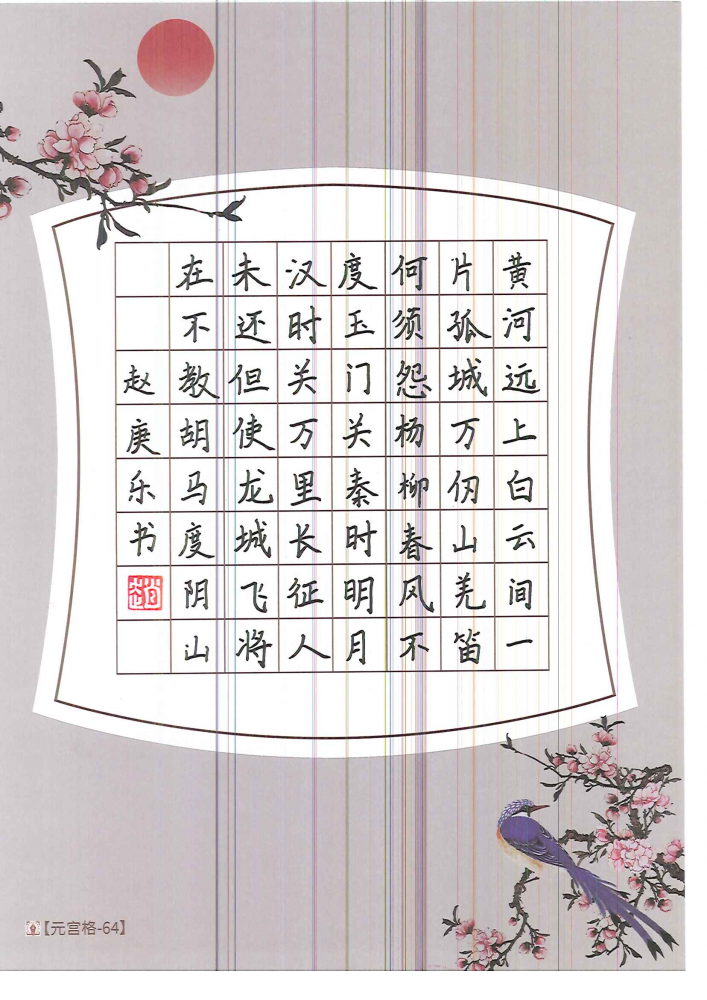 黄河远上白云间一
片孤城万仞山羌笛
何须怨杨柳春风不
度玉门关秦时明月
汉时关万里长征人
未还但使龙城飞将
在不教胡马度阴山
赵庚乐书
【元宫格-64】